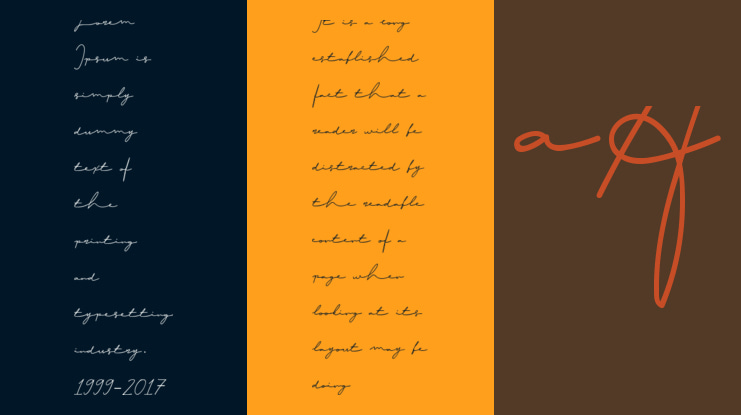 Lorem
Ipsum is
simply
dummy
text of
the
printing
and
typesetting
industry.
1999-2017
It is a long
established
fact that a
reader will be
distracted by
the readable
content of a
page when
looking at its
layout may be
doing
a